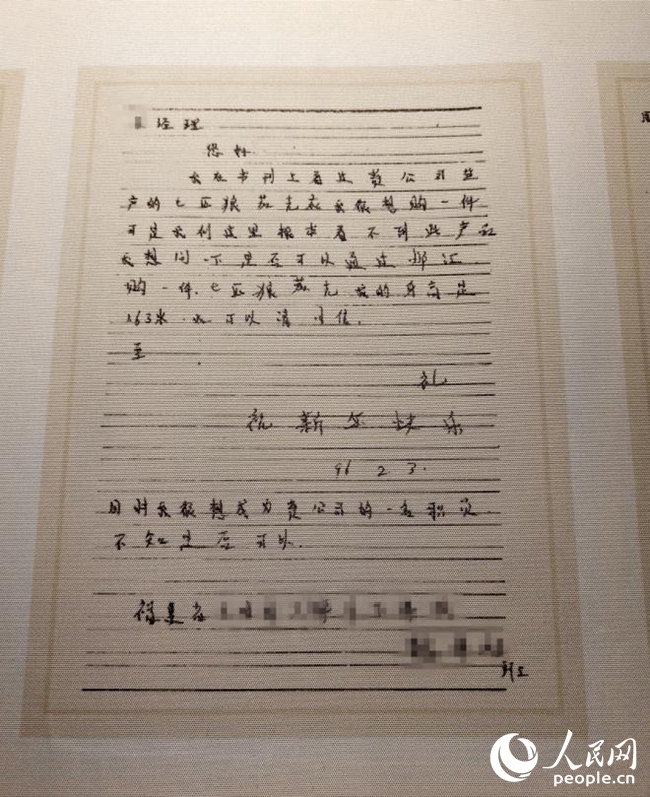 经理
您好
我在书刊上看过贵公司生
产的七匹狼茄克衣我很想购一件
可是我们这里根本看不到此产品
我想问一下是否可以通过邮汇
购一件.七匹狼茄克 我的身高是
1.63米.如可以请回信.
至
礼
祝新年快乐
96 2 3.
同时我很想成为贵公司的一名职员
不知是否可以.
福建省
人民网
people.cn